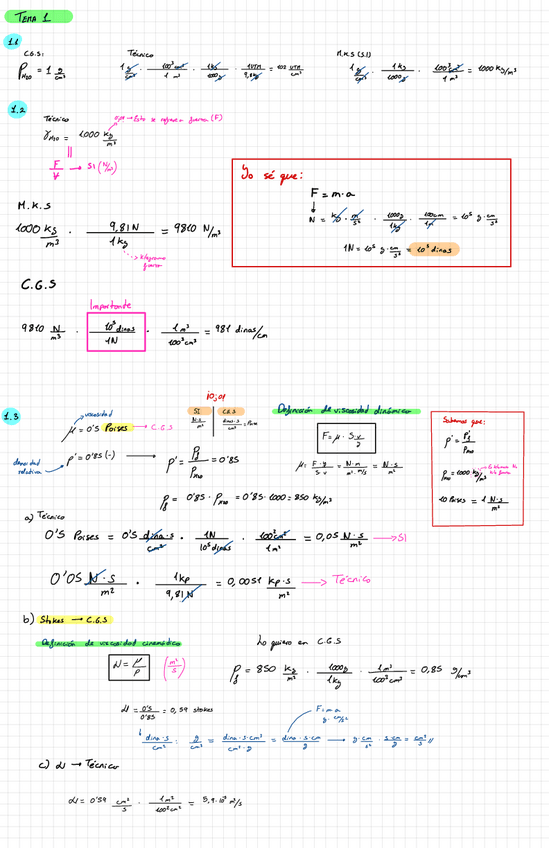 TEMA 1
1.1
C.G.S: Técnico M.K.S (S.I)
ρH2O = 1 g/cm³ 1 g/cm³ · 100³ cm³/1 m³ · 1 kg/1000 g · 1 UTM/9,8 kg = 102 UTM/cm³ 1 g/cm³ · 1 kg/1000 g · 100³ cm³/1 m³ = 1000 kg/m³
1.2
Técnico
γH2O = 1000 kg/m³ → Esto se refiere a fuerza (F)
F/V → SI (N/m³)
Yo sé que:
F = m·a
N = kg · m/s² · 1000g/1kg · 100cm/1m = 10⁵ g·cm/s²
1N = 10⁵ g·cm/s² = 10⁵ dinas
M.K.S
1000 kg/m³ · 9,81 N/1 kg = 9810 N/m³
kilogramo fuerza
C.G.S
Importante
9810 N/m³ · 10⁵ dinas/1N · 1 m³/100³ cm³ = 981 dinas/cm
1.3
viscosidad
μ = 0'5 Poises → C.G.S
SI C.G.S
N·s/m² dina·s/cm² = Poise
Definición de viscosidad dinámica
F = μ · S·v/y
μ = F·y/S·v = N·m/m²·m/s = N·s/m²
Sabemos que:
ρ' = ρf/ρH2O
ρH2O = 1000 kg/m³
10 Poises = 1 N·s/m²
densidad relativa
ρ' = 0'85 (-) → ρ' = ρf/ρH2O = 0'85
ρf = 0'85 · ρH2O = 0'85 · 1000 = 850 kg/m³
a) Técnico
0'5 Poises = 0'5 dina·s/cm² · 1N/10⁵ dinas · 100² cm²/1 m² = 0,05 N·s/m² → SI
0'05 N·s/m² · 1kp/9,81 N = 0,0051 kp·s/m² → Técnico
b) Stokes → C.G.S
Definición de viscosidad cinemática
ν = μ/ρ (m²/s)
Lo quiero en C.G.S
ρf = 850 kg/m³ · 1000g/1kg · 1 m³/100³ cm³ = 0,85 g/cm³
ν = 0'5/0'85 = 0,59 stokes
F = m·a
g·cm/s²
dina·s/cm² : g/cm³ = dina·s·cm³/cm²·g = dina·s·cm/g → g·cm/s² · s·cm/g = cm²/s //
c) ν → Técnico
ν = 0'59 cm²/s · 1 m²/100² cm² = 5,9·10⁻⁵ m²/s